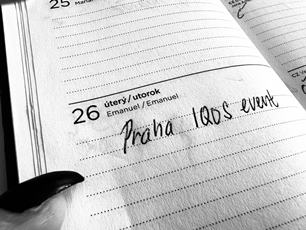 25
26 úterý / utorok
Emanuel / Emanuel
Praha IQOS event